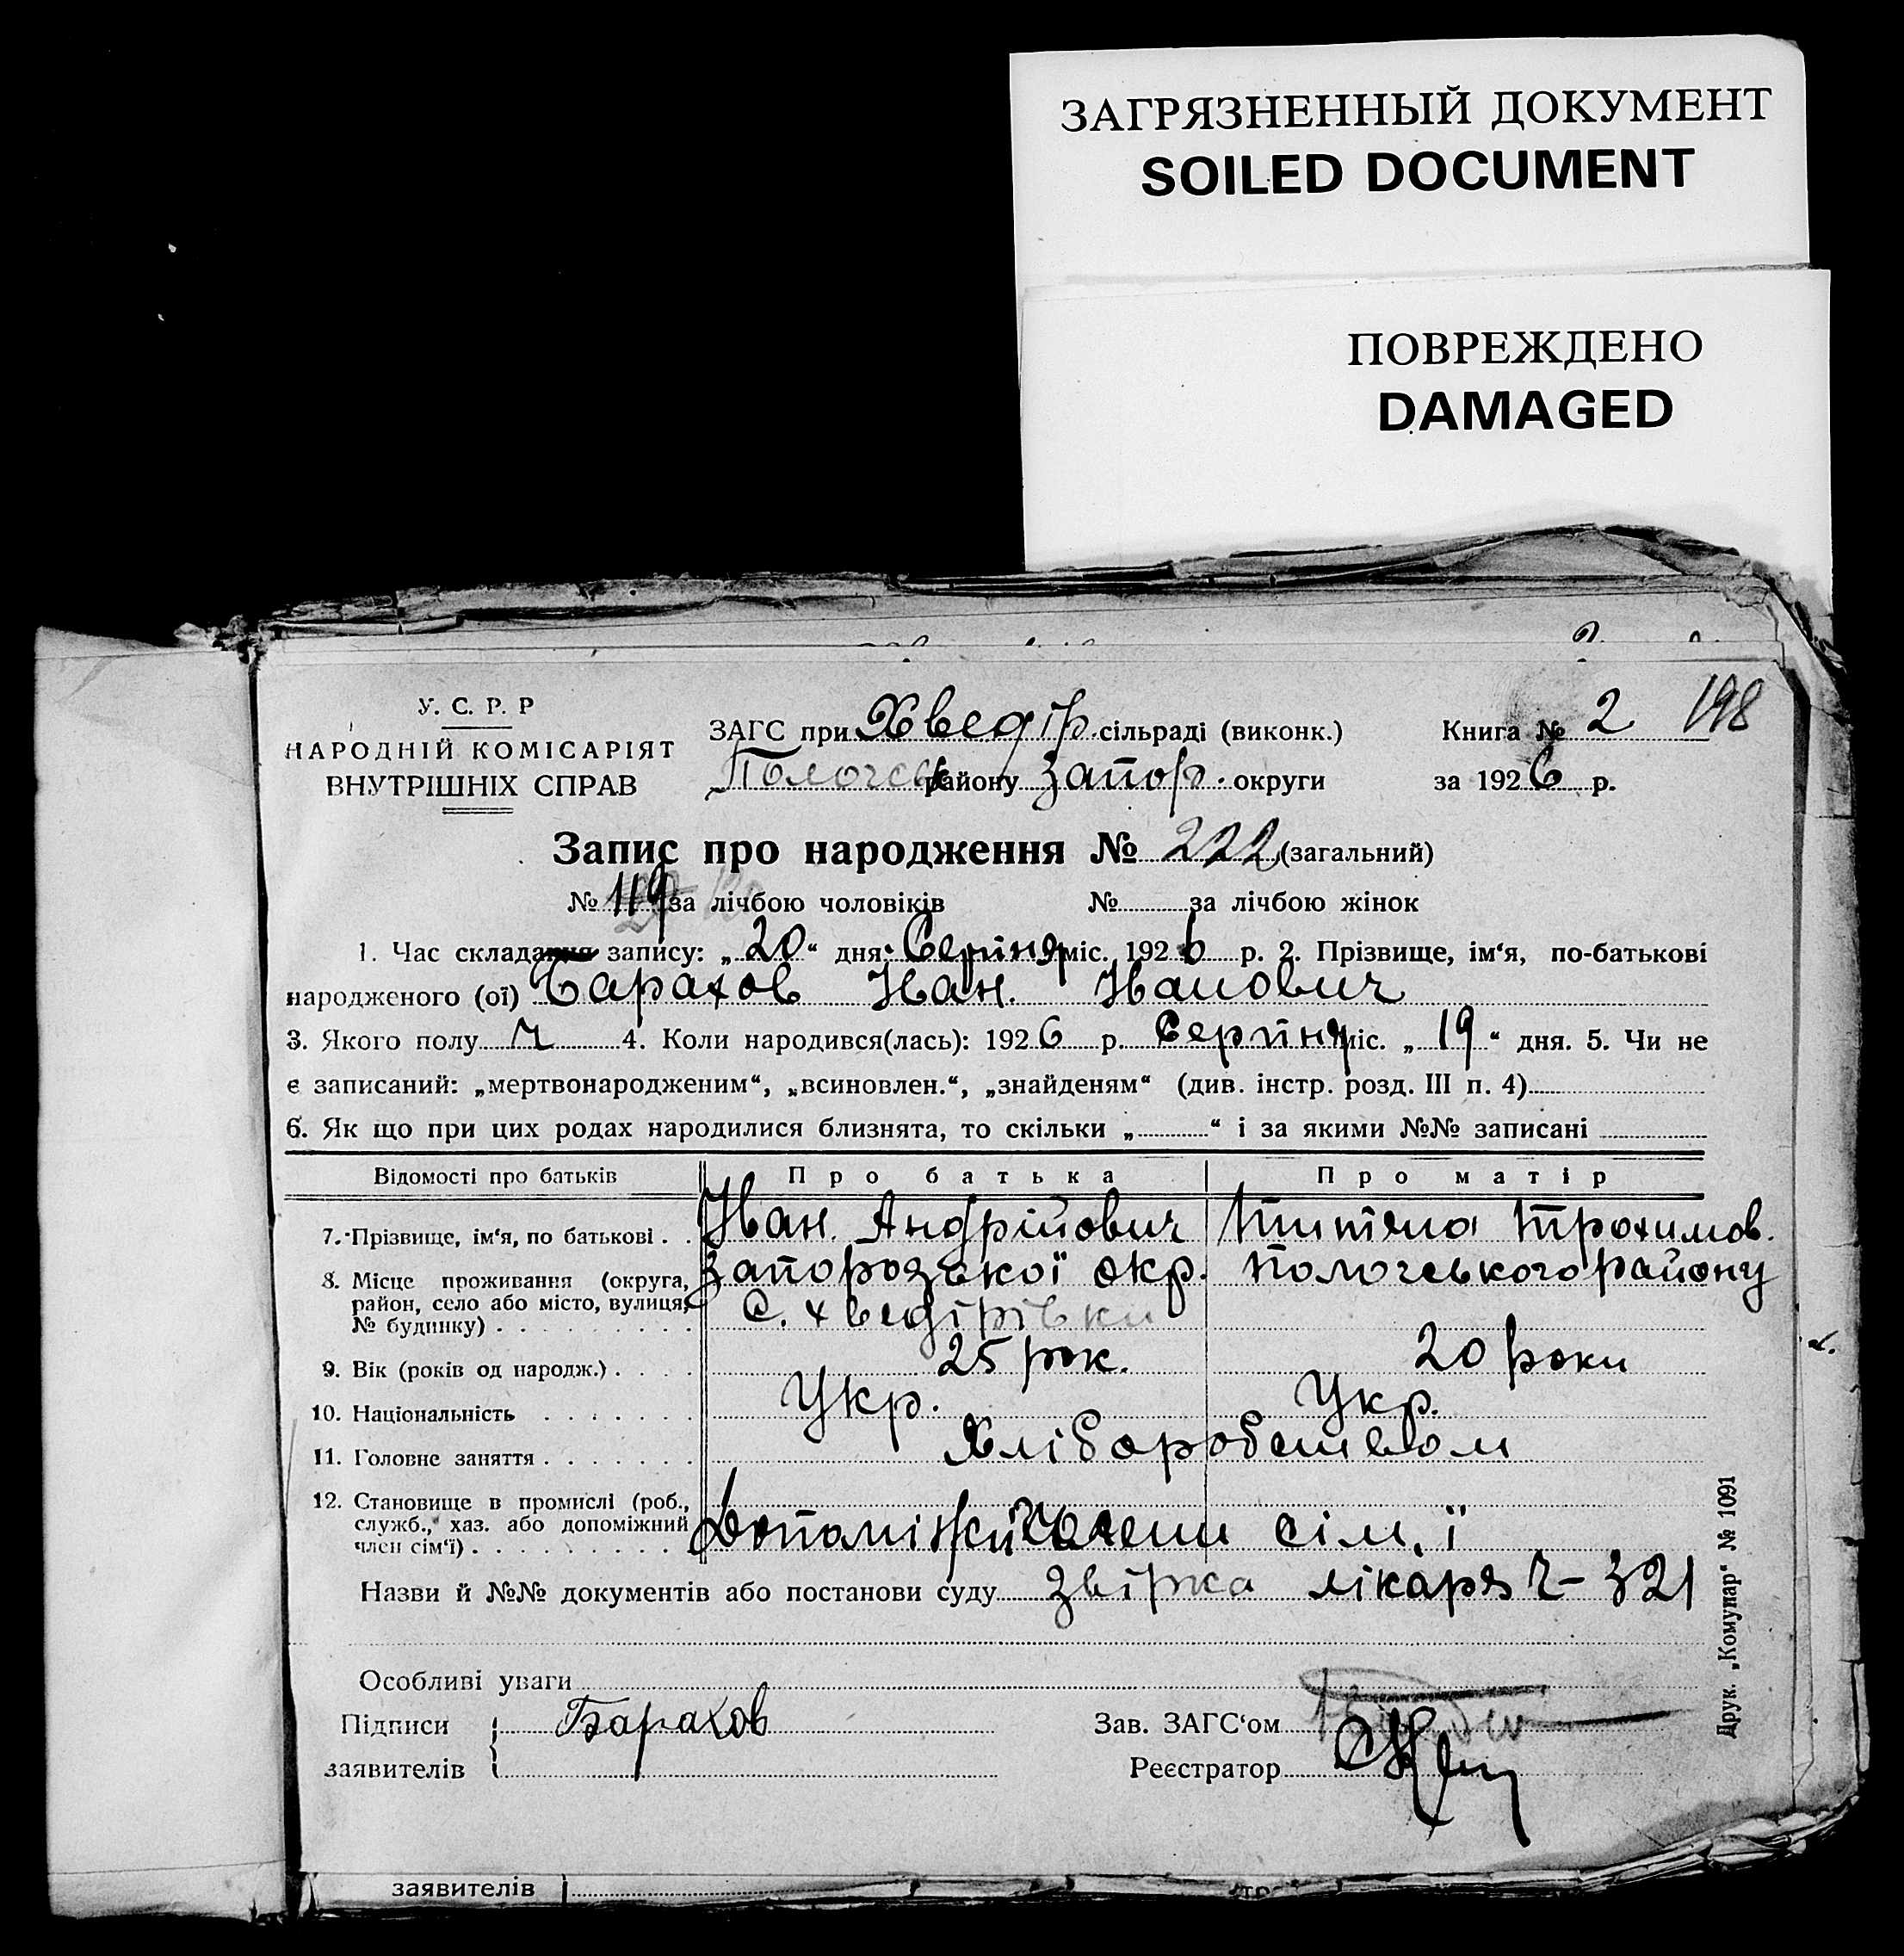 ЗАГРЯЗНЕННЫЙ ДОКУМЕНТ
SOILED DOCUMENT
ПОВРЕЖДЕНО
DAMAGED
198
У. С. Р. Р
НАРОДНІЙ КОМІСАРІЯТ
ВНУТРІШНІХ СПРАВ
ЗАГС при Хведір. сільраді (виконк.)
Пологськ району Запор. округи
Книга № 2
за 1926 р.
Запис про народження № 222 (загальний)
№ 119 за лічбою чоловіків № за лічбою жінок
1. Час складання запису: „20“ дня Серпня міс. 1926 р. 2. Прізвище, ім‘я, по-батькові
народженого (ої) Барахов Іван. Іванович
3. Якого полу ч 4. Коли народився(лась): 1926 р. Серпня міс. „19“ дня. 5. Чи не
є записаний: „мертвонародженим“, „всиновлен.“, „знайденям“ (див. інстр. розд. III п. 4)
6. Як що при цих родах народилися близнята, то скільки „ “ і за якими №№ записані
Відомості про батьків Про батька Про матір
7. Прізвище, ім‘я, по батькові . . Іван. Андрійович Трохимов.
8. Місце проживання (округа, Запорозької окр. Пологського району
район, село або місто, вулиця, с. Хведірівки
№ будинку) . . . . . . . . .
9. Вік (років од народж.) . . . . 25 рок. 20 роки
10. Національність . . . . . . . Укр. Укр.
11. Головне заняття . . . . . . . Хліборобством
12. Становище в промислі (роб.,
служб., хаз. або допоміжний сім,ї
член сім‘ї) . . . . . . . . .
Назви й №№ документів або постанови суду звірка лікаря ч-321
Особливі уваги
Підписи Барахов
заявителів
Зав. ЗАГС‘ом
Реєстратор
Друк. „Комунар“ № 1091
заявителів